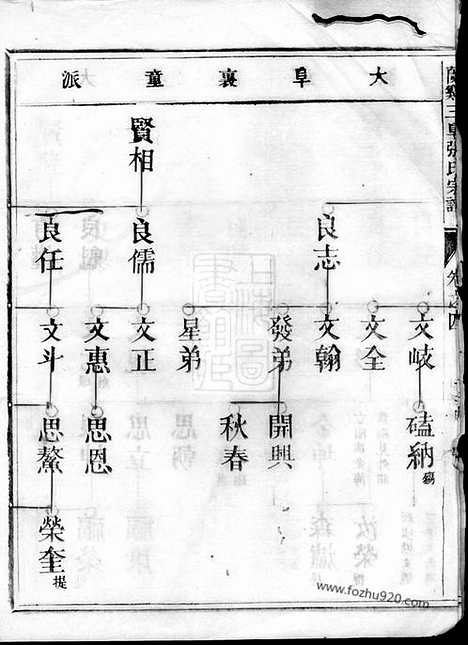 大阜裏童派
三阜張氏宗譜
卷之四
賢相
良志
良儒
良任
文岐
文全
文翰
發弟
星弟
文正
文惠
文斗
磕納
開興
秋春
思恩
思鰲
榮奎提
www.fozhu920.com